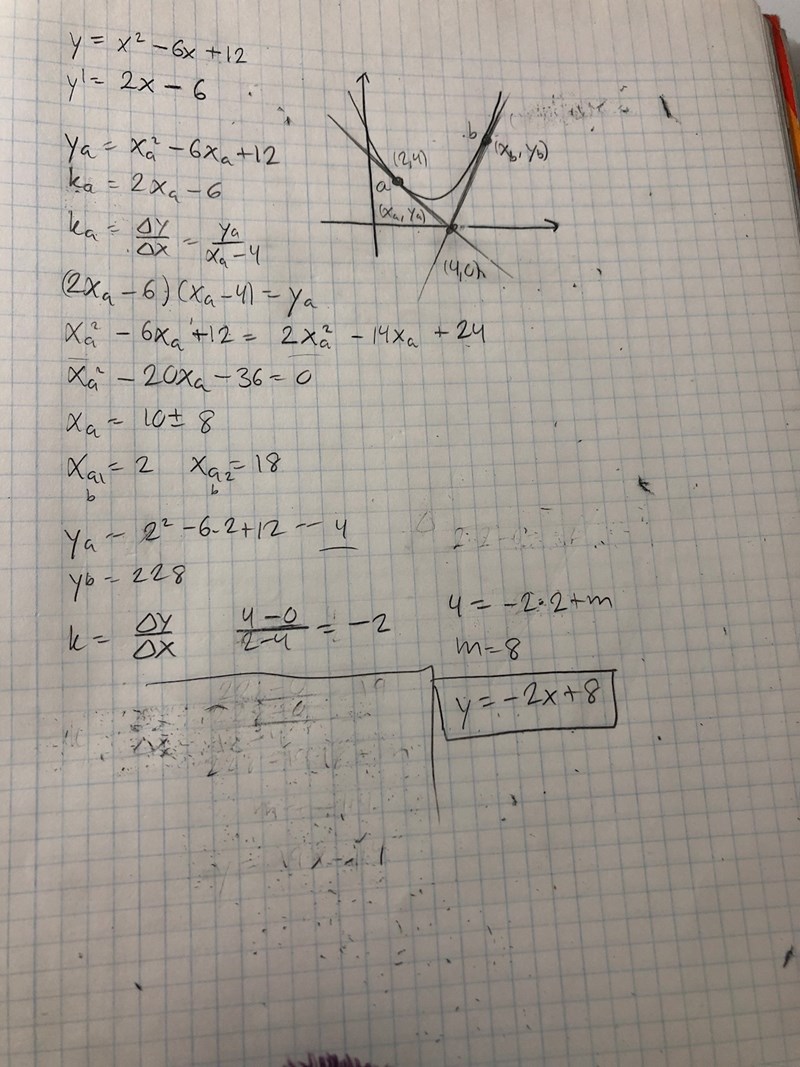 y = x² - 6x + 12
y' = 2x - 6
yₐ = xₐ² - 6xₐ + 12
kₐ = 2xₐ - 6
kₐ = Δy/Δx = yₐ/(xₐ - 4)
(2xₐ - 6)(xₐ - 4) = yₐ
xₐ² - 6xₐ + 12 = 2xₐ² - 14xₐ + 24
xₐ² - 20xₐ - 36 = 0
xₐ = 10 ± 8
xₐ₁ = 2 xₐ₂ = 18
b b
yₐ = 2² - 6·2 + 12 = 4
yb = 228
k = Δy/Δx (4-0)/(2-4) = -2
4 = -2·2 + m
m = 8
y = -2x + 8
(2,4)
a
(xₐ, yₐ)
b
(x_b, y_b)
(4,0)